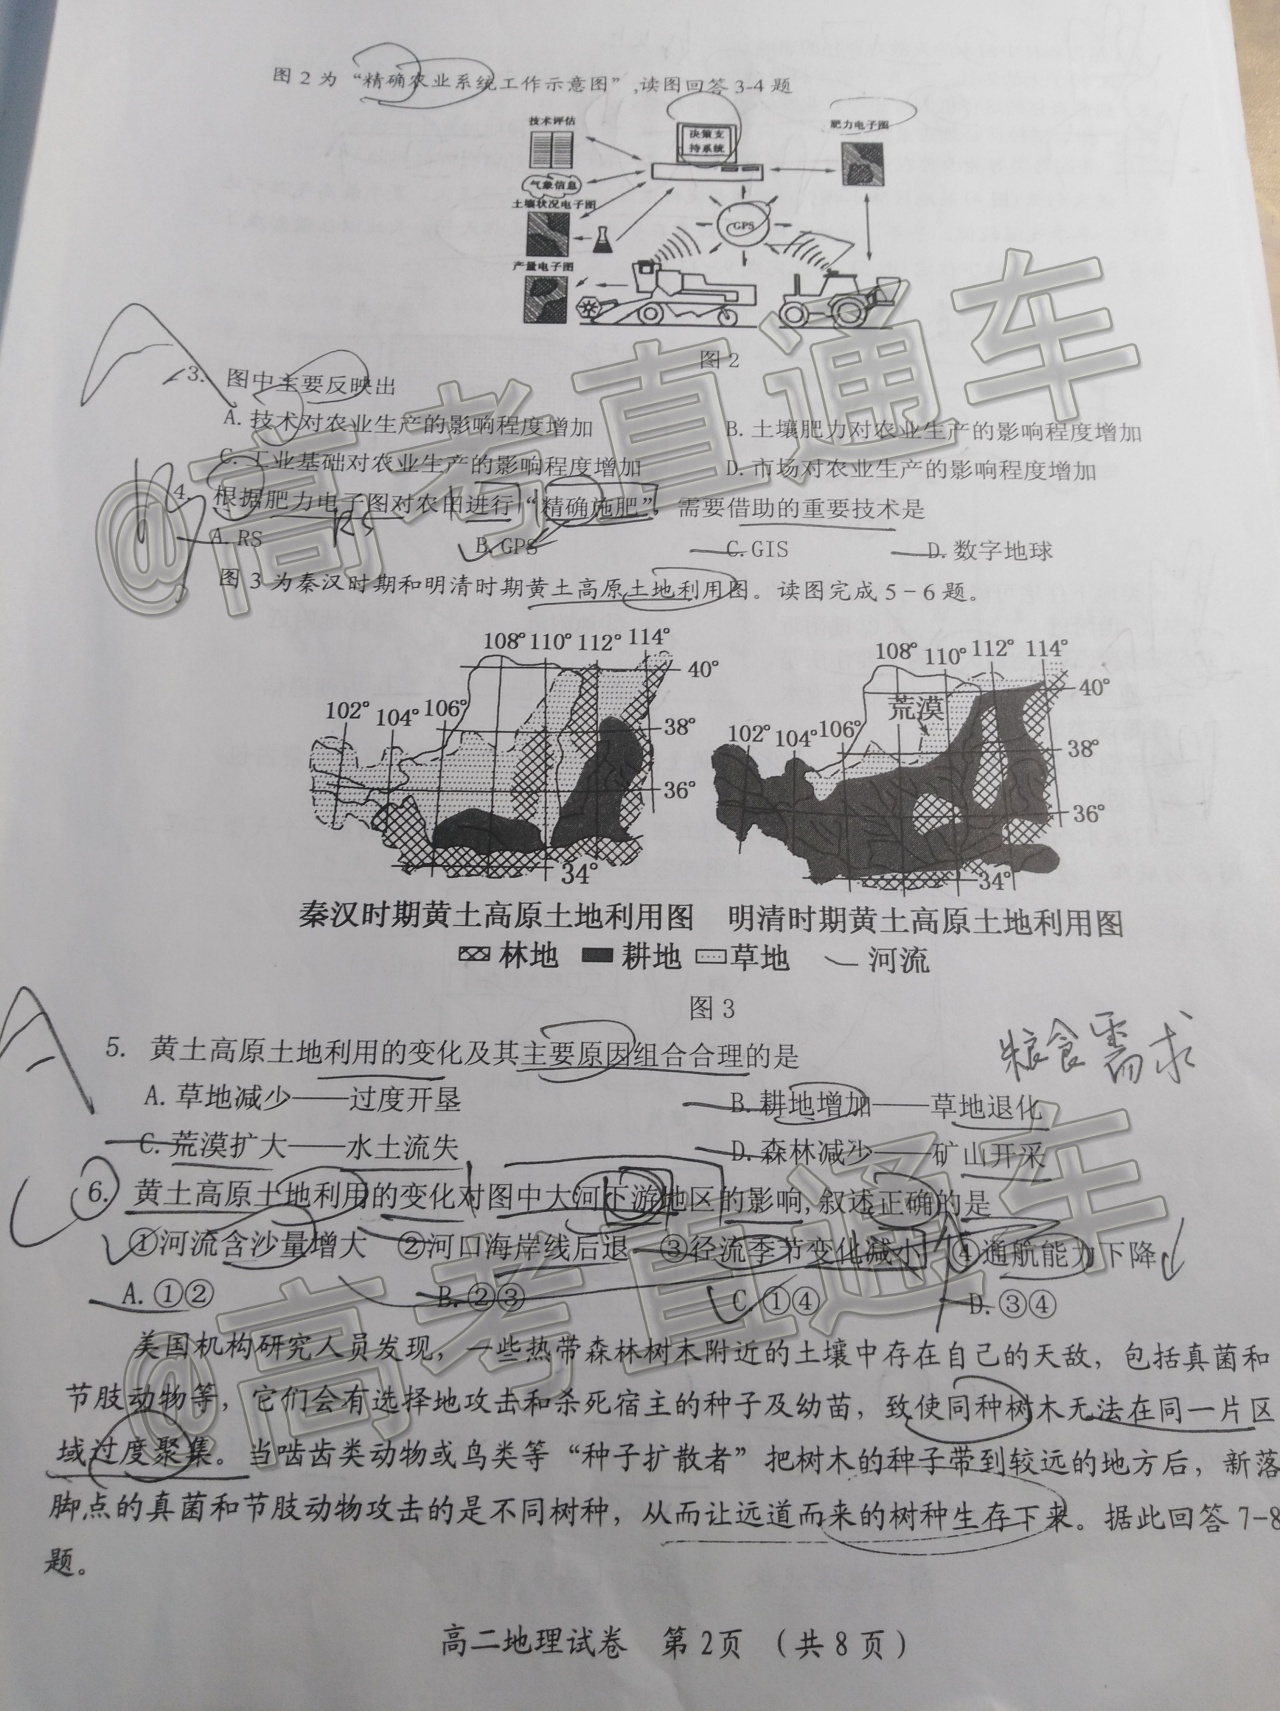 图2为“精确农业系统工作示意图”,读图回答3-4题
技术评估
决策支
持系统
肥力电子图
气象信息
土壤状况电子图
GPS
产量电子图
图2
3. 图中主要反映出
A. 技术对农业生产的影响程度增加 B. 土壤肥力对农业生产的影响程度增加
C. 工业基础对农业生产的影响程度增加 D. 市场对农业生产的影响程度增加
4. 根据肥力电子图对农田进行“精确施肥”，需要借助的重要技术是
RS
A. RS B. GPS C. GIS D. 数字地球
图3为秦汉时期和明清时期黄土高原土地利用图。读图完成5-6题。
108° 110° 112° 114°
40°
102° 104° 106°
38°
36°
34°
108° 110° 112° 114°
荒漠
40°
102° 104° 106°
38°
36°
34°
秦汉时期黄土高原土地利用图 明清时期黄土高原土地利用图
林地 耕地 草地 河流
图3
粮食需求
5. 黄土高原土地利用的变化及其主要原因组合合理的是
A. 草地减少——过度开垦 B. 耕地增加——草地退化
C. 荒漠扩大——水土流失 D. 森林减少——矿山开采
6. 黄土高原土地利用的变化对图中大河下游地区的影响,叙述正确的是
①河流含沙量增大 ②河口海岸线后退 ③径流季节变化减小 ④通航能力下降
A. ①② B. ②③ C ①④ D. ③④
美国机构研究人员发现，一些热带森林树木附近的土壤中存在自己的天敌，包括真菌和
节肢动物等，它们会有选择地攻击和杀死宿主的种子及幼苗，致使同种树木无法在同一片区
域过度聚集。当啮齿类动物或鸟类等“种子扩散者”把树木的种子带到较远的地方后，新落
脚点的真菌和节肢动物攻击的是不同树种，从而让远道而来的树种生存下来。据此回答7-8
题。
高二地理试卷 第2页 （共8页）
@高考直通车
@高考直通车